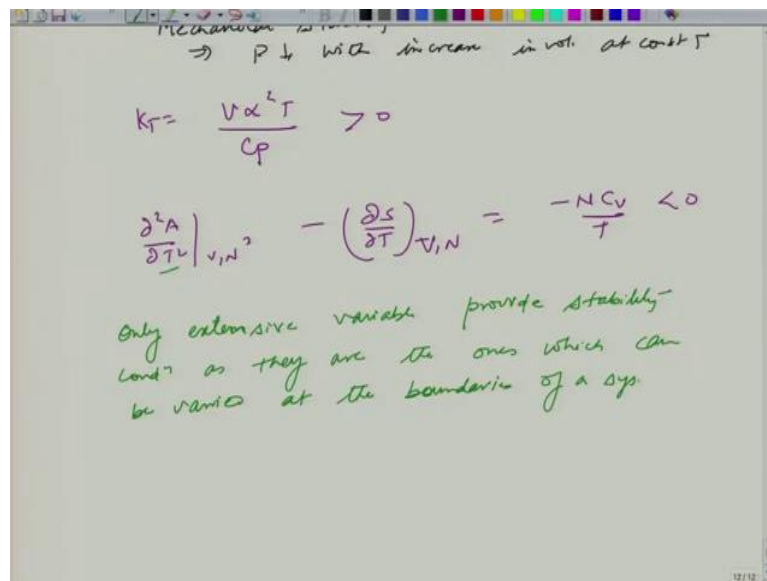 Mechanical
⇒ P ↓ with increase in vol. at const T
K_T = Vα²T / C_P > 0
∂²A / ∂T² |_{V,N} = - (∂S/∂T)_{V,N} = -N C_V / T < 0
Only extensive variable provide stability
condⁿ as they are the ones which can
be varied at the boundaries of a sys.
12/12